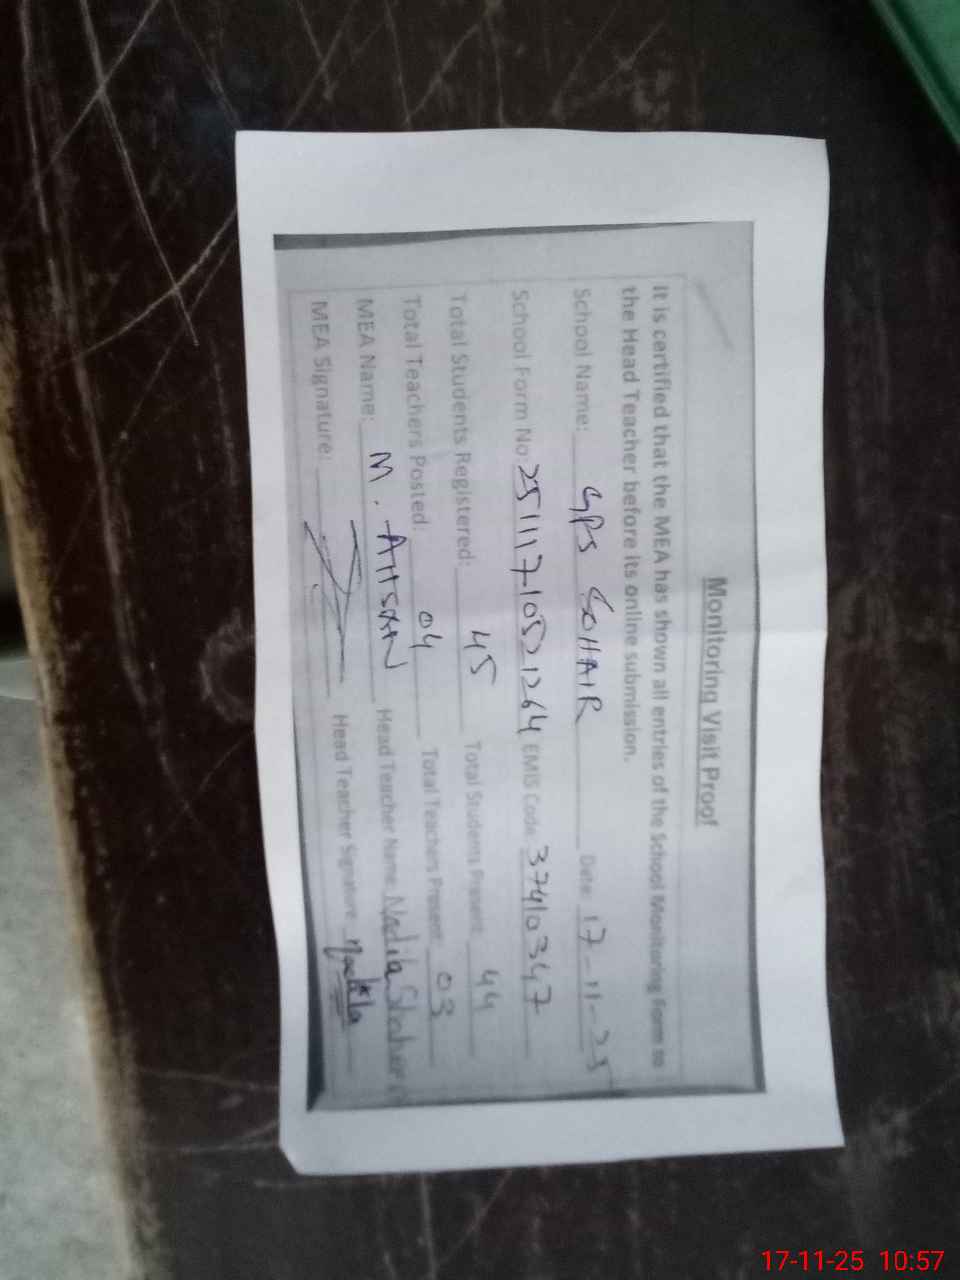 Monitoring Visit Proof
It is certified that the MEA has shown all entries of the School Monitoring Form to
the Head Teacher before its online submission.
School Name: GPS SOHAIR Date: 17-11-25
School Form No: 25111710521264 EMIS Code: 37410347
Total Students Registered: 45 Total Students Present: 44
Total Teachers Posted: 04 Total Teachers Present: 03
MEA Name: M. AHSAN Head Teacher Name: Nadila
MEA Signature: Head Teacher Signature:
17-11-25 10:57